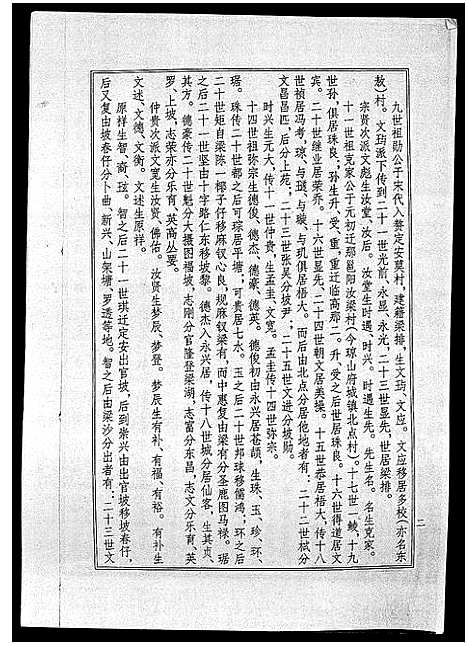 九世祖勋公于宋代入赘定安莫村，建籍梁排，生文䓖、文应。文应移居多校(亦名东
敖)村。文䓖派下传到二十一世光前、永显、永光，二十三世显先，世居梁排。
宗贤次派文彪生汝堂、汝后。汝堂生时遇、时兴。时遇生先。先生名。名生克家。
十一世祖克家公于元初迁那邕阳汝梁村(今琼山府城镇北点村)。十七世一畯，十九
世孙，俱居珠良；孙生升、受、重，重迁临高那二。升、受之后世居珠良。十六世得道居文
宾。二十世继业居荣乔。十六世显先、二十四世朝文居美操。十五世恭居梧大，传十八
世祯居冯考，琼、与瑛、与璇、与玑俱居梧大。而后由北点分居他地者有：二十二世杕分
文昌昌匹，后分上苑；二十三世张昊分坡尹；二十五世文进分坡勋。
时兴生元大，传十一世仲贵，生孟圭、文宽。孟圭传十四世弥宗。
十四世祖弥宗生德俊、德杰、德豪、德英。德俊初由永兴居苍颉，生珠、玉、珍、环、
琚。珠传二十世都之后可琮居平塘；可贵居七水。玉之后二十世邦球移儒鸿；环之后
二十世矩自梁陈一樑子仔移麻钗心良，规麻钗梁有，而中惠复由梁有分圣鹿图马樑。琚
之后二十一世坚由十字路仁东移坡黎。德杰入永兴居，传十八世城分居仙客，生其贞、
其方。德豪传二十世魁分大摄图福坡，志刚分官隆登梁湖，志富分东昌，志文分乐育、英
罗、上坡，志荣亦分乐育、英高丛要。
仲贵次派文宽生汝贤、佛佑。汝贤生梦辰、梦登。梦辰生有补、有福、有裕。有补生
文述、文德、文衡。文述生原祥。
原祥生智、裔、玹。智之后二十一世琪迁定安出官坡，后到崇兴由出官坡移坡春仔，
后又复由坡春仔分卜曲、新兴、山架塘、罗透等地。智之后由梁沙分出者有：二十三世文
二